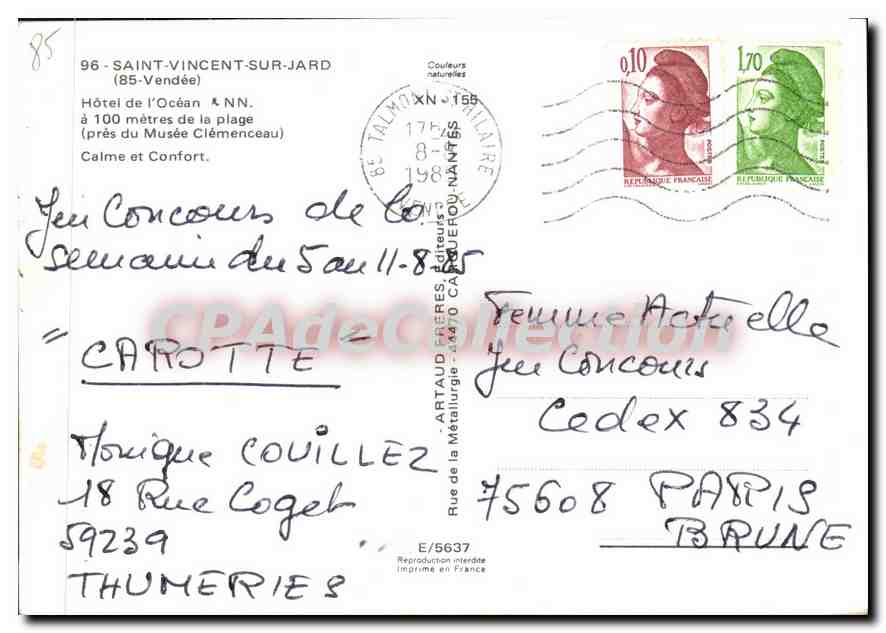 85
96 - SAINT-VINCENT-SUR-JARD
(85-Vendée)
Hôtel de l'Océan * NN.
à 100 mètres de la plage
(près du Musée Clémenceau)
Calme et Confort.
Couleurs
naturelles
XN - 155
85 TALMONT ST HILAIRE
VENDEE
0,10
POSTES
REPUBLIQUE FRANÇAISE
1,70
POSTES
REPUBLIQUE FRANÇAISE
Jeu Concours de la
semaine du 5 au 11-8-85
"CAROTTE"
Monique COUILLEZ
18 Rue Coget
59239
THUMERIES
- ARTAUD FRÈRES, Éditeurs -
Rue de la Métallurgie - 44470 CARQUEFOU-NANTES
E/5637
Reproduction interdite
Imprimé en France
Femme Actuelle
Jeu Concours
Cedex 834
75608 PARIS
BRUNE
CPAdeCollection